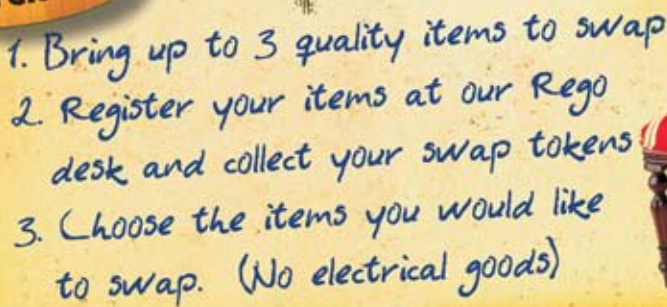 1. Bring up to 3 quality items to swap
2. Register your items at our Rego
desk and collect your swap tokens
3. Choose the items you would like
to swap. (No electrical goods)